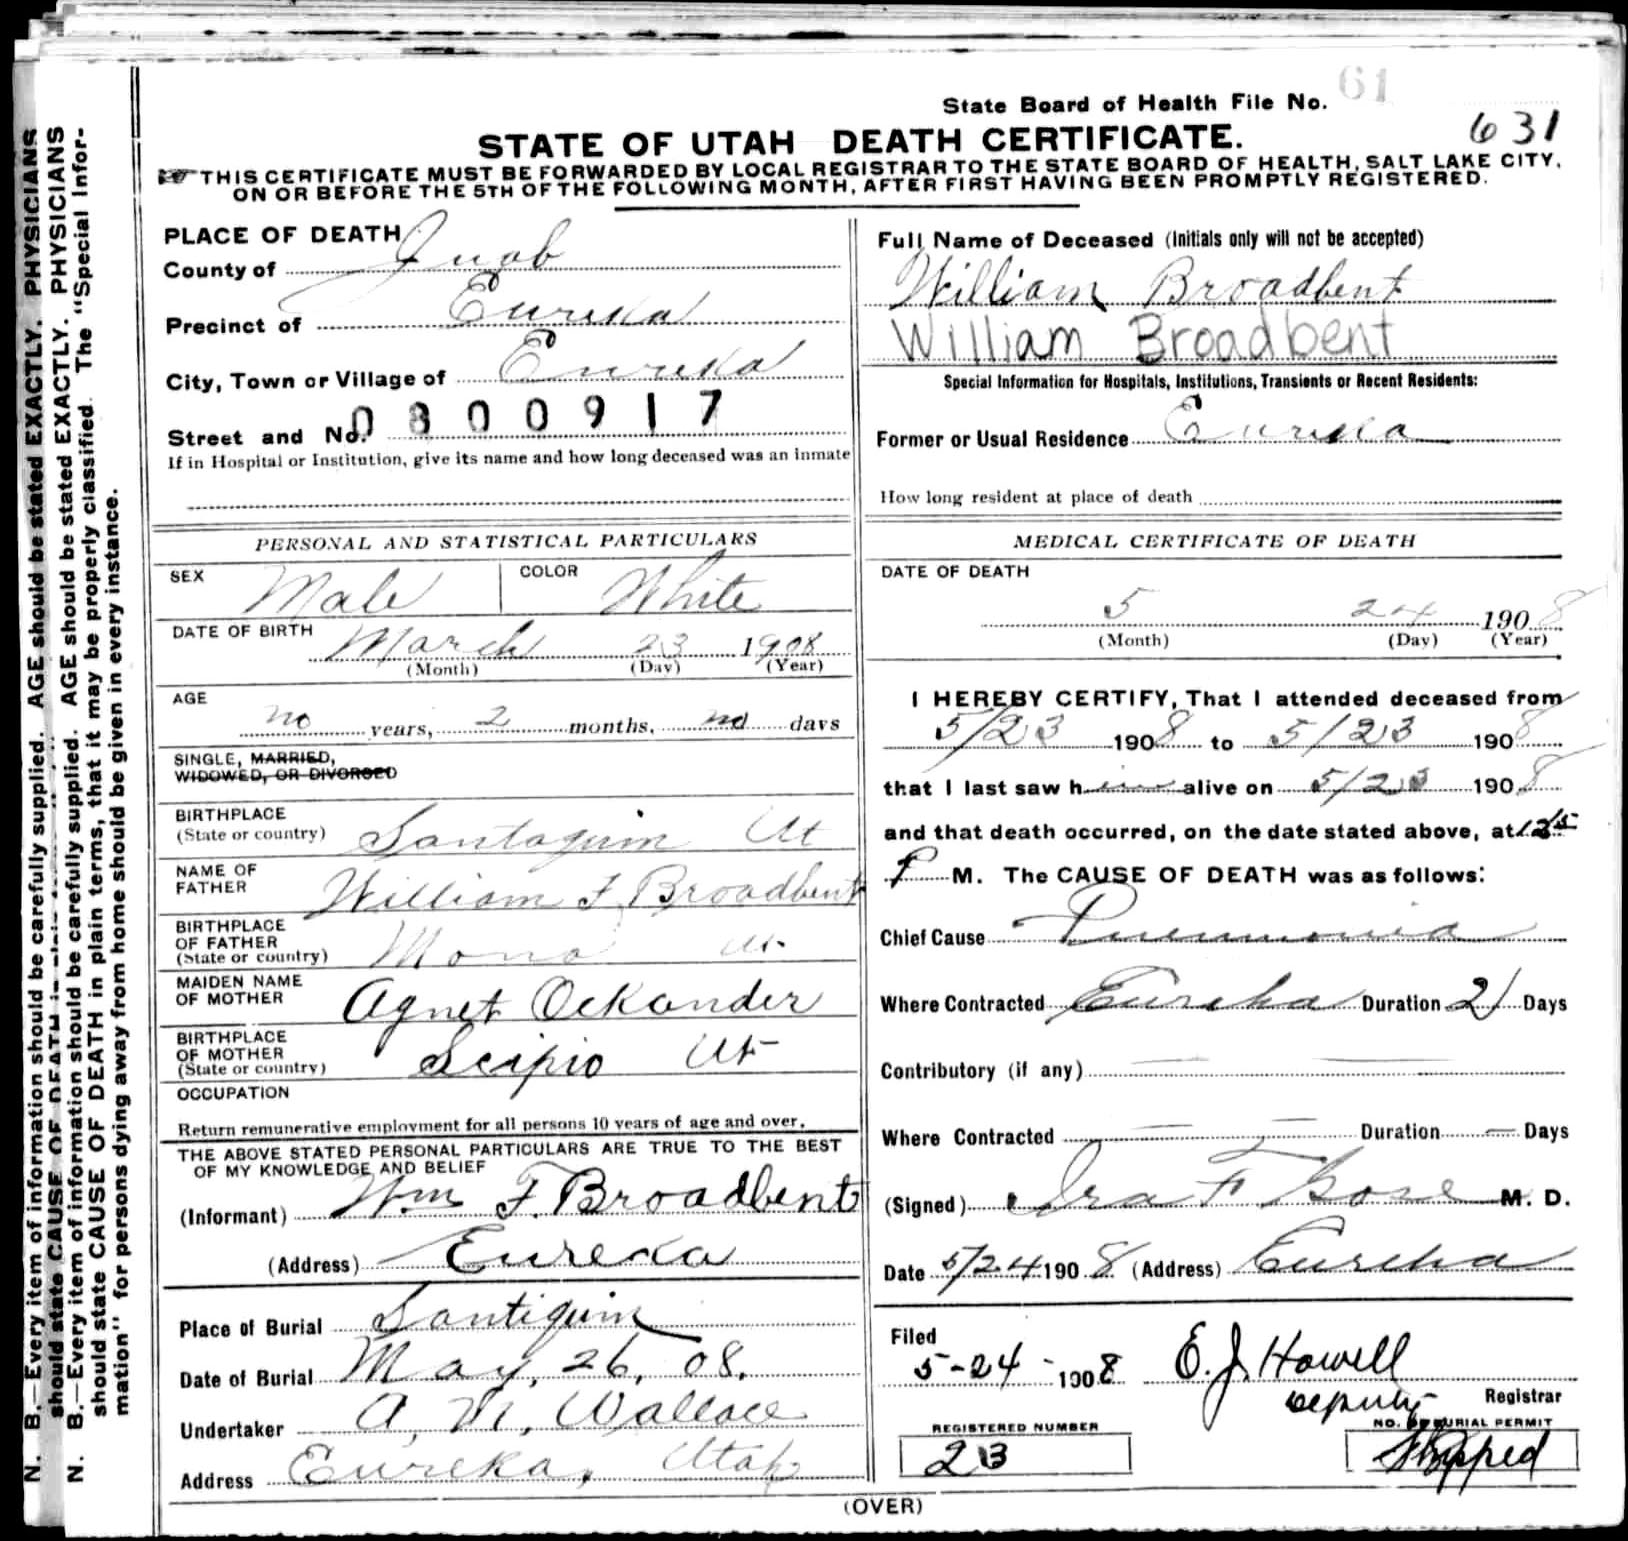 State Board of Health File No. 61
631
STATE OF UTAH DEATH CERTIFICATE.
THIS CERTIFICATE MUST BE FORWARDED BY LOCAL REGISTRAR TO THE STATE BOARD OF HEALTH, SALT LAKE CITY,
ON OR BEFORE THE 5TH OF THE FOLLOWING MONTH, AFTER FIRST HAVING BEEN PROMPTLY REGISTERED.
PLACE OF DEATH
County of Juab
Precinct of Eureka
City, Town or Village of Eureka
0300917
Street and No.
If in Hospital or Institution, give its name and how long deceased was an inmate
PERSONAL AND STATISTICAL PARTICULARS
SEX Male COLOR White
DATE OF BIRTH March 23 1908
(Month) (Day) (Year)
AGE
no years, 2 months, no days
SINGLE, MARRIED,
WIDOWED, OR DIVORCED
BIRTHPLACE
(State or country) Santaquin Ut
NAME OF
FATHER William F Broadbent
BIRTHPLACE
OF FATHER
(State or country) Mona Ut.
MAIDEN NAME
OF MOTHER Agnet Ockander
BIRTHPLACE
OF MOTHER
(State or country) Scipio Ut
OCCUPATION
Return remunerative employment for all persons 10 years of age and over.
THE ABOVE STATED PERSONAL PARTICULARS ARE TRUE TO THE BEST
OF MY KNOWLEDGE AND BELIEF
(Informant) Wm F. Broadbent
(Address) Eureka
Place of Burial Santiquin
Date of Burial May, 26, 08.
Undertaker A. M. Wallace
Address Eureka, Utah
Full Name of Deceased (Initials only will not be accepted)
William Broadbent
William Broadbent
Special Information for Hospitals, Institutions, Transients or Recent Residents:
Former or Usual Residence Eureka
How long resident at place of death
MEDICAL CERTIFICATE OF DEATH
DATE OF DEATH
5 24 1908
(Month) (Day) (Year)
I HEREBY CERTIFY, That I attended deceased from
5/23 1908 to 5/23 1908
that I last saw him alive on 5/23 1908
and that death occurred, on the date stated above, at 12 15
P M. The CAUSE OF DEATH was as follows:
Chief Cause Pneumonia
Where Contracted Eureka Duration 2 Days
Contributory (if any)
Where Contracted Duration Days
(Signed) Ira F M. D.
Date 5/24 1908 (Address) Eureka
Filed
5-24-1908 E. J. Howell
Deputy Registrar
REGISTERED NUMBER
23
NO. OF BURIAL PERMIT
Shipped
(OVER)
N. B.—Every item of information should be carefully supplied. AGE should be stated EXACTLY. PHYSICIANS
should state CAUSE OF DEATH in plain terms
N. B.—Every item of information should be carefully supplied. AGE should be stated EXACTLY. PHYSICIANS
should state CAUSE OF DEATH in plain terms, that it may be properly classified. The "Special Infor-
mation" for persons dying away from home should be given in every instance.